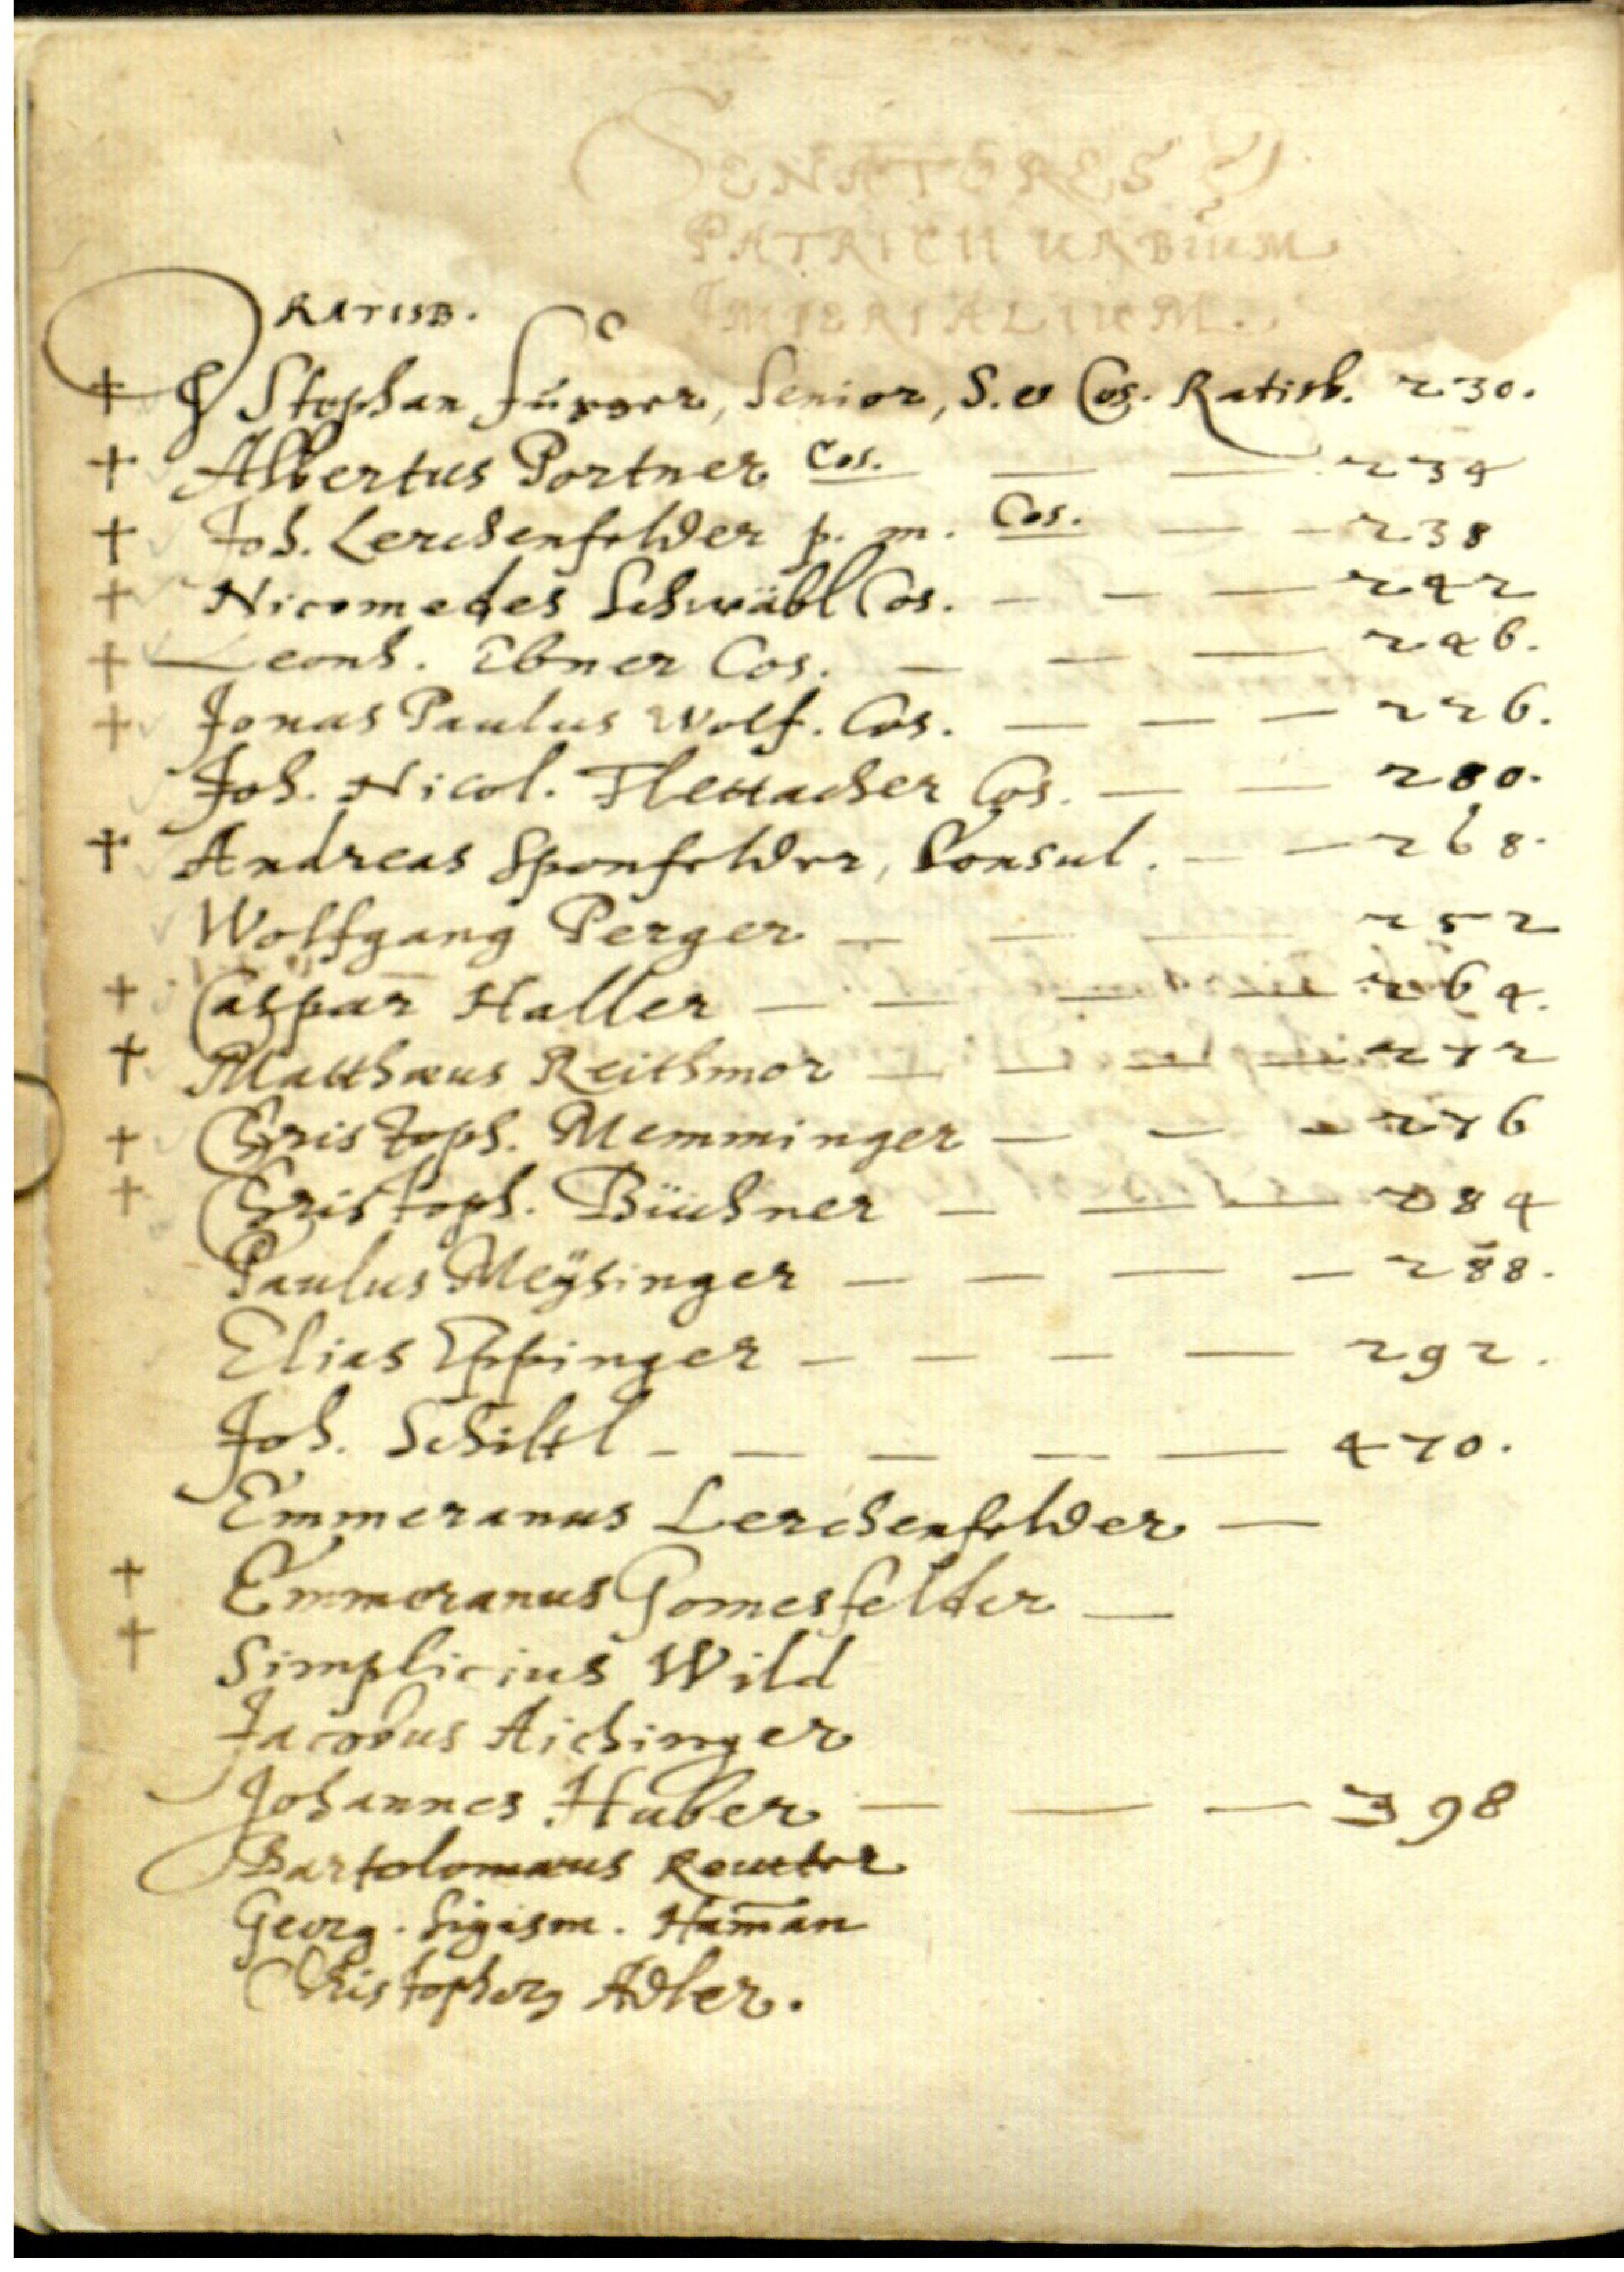 SENATORES &
PATRICII URBIUM
IMPERIALIUM.
RATISB.
† Stephan Fürger, Senior, S. et Cos. Ratisb. 230.
† Albertus Portner Cos. — — 234
† Joh. Lerchenfelder p. m. Cos. — — 238
† Nicomedes Schwäbl Cos. — — — 242
† Leonh. Ebner Cos. — — — 246.
† Jonas Paulus Wolf. Cos. — — — 226.
Joh. Nicol. Flettacher Cos. — — 280.
† Andreas Sponfelder, Consul. — — 268.
Wolfgang Perger — — — 252
† Caspar Haller — — — — 264.
† Matthæus Reithmor — — — — 272
† Christoph. Memminger — — — 276
† Christoph. Büchner — — — 284
Paulus Meÿsinger — — — — 288.
Elias Eppinger — — — — 292.
Joh. Schiltl — — — — — 470.
Emmeranus Lerchenfelder —
† Emmeranus Gomesfelder —
† Simplicius Wild
Jacobus Aichinger
Johannes Huber — — — 398
Bartolomæus Reutter
Georg. Sigism. Haman̄
Christophorus Adler.